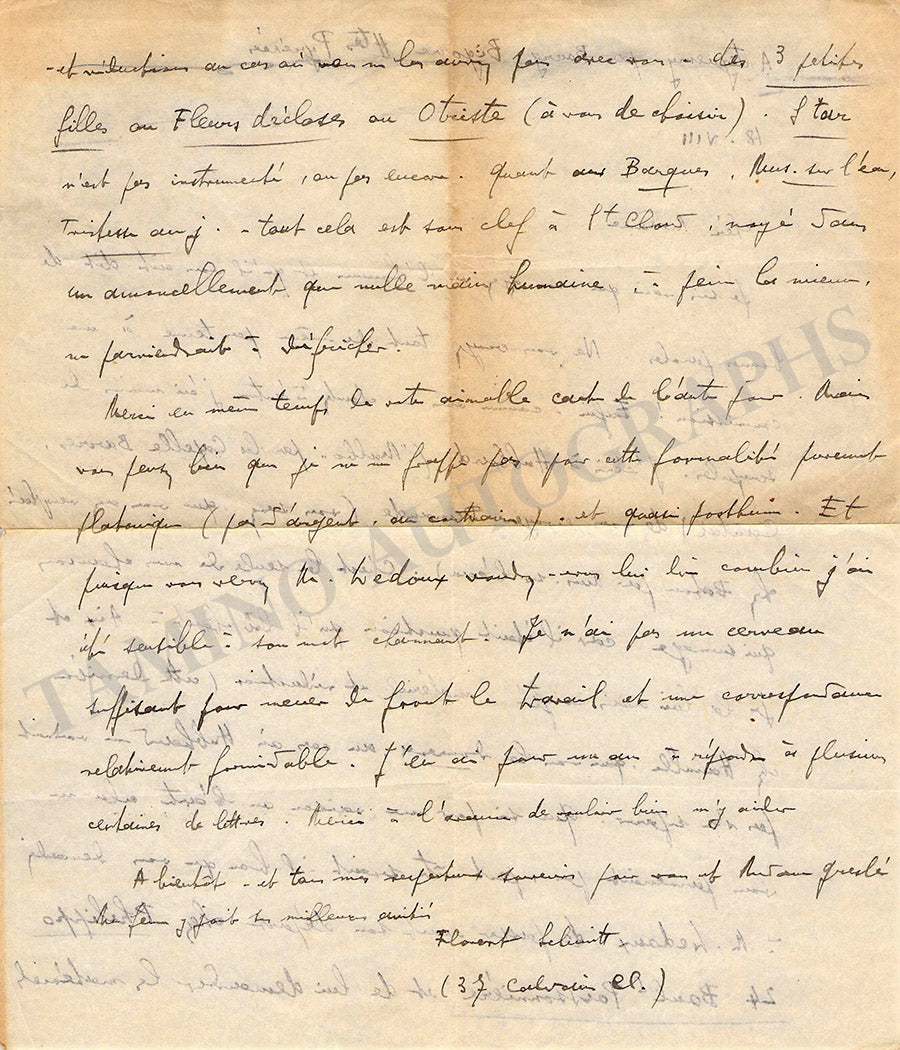 - et réductions au cas où vous ne les auriez pas avec vous - des 3 petites
filles ou Fleurs décloses ou Octroi (à vous de choisir). Star
n'est pas instrumenté, ou pas encore. Quant aux Barques, Mus. sur l'eau,
Tristesse au j. - tout cela est sous clef à St Cloud, noyé dans
un amoncellement que nulle main humaine, à fein les mieux,
ne parviendrait à défricher.
Merci en même temps de votre aimable carte de l'autre jour. Mais
vous pensez bien que je ne me frappe pas pour cette formalité purement
platonique (pas d'argent, au contraire), et quasi posthume. Et
puisque vous verrez M. Ledoux voudrez-vous lui dire combien j'ai
été sensible à son mot charmant. Je n'ai pas un cerveau
suffisant pour mener de front le travail et une correspondance
relativement formidable. J'en ai pour un an à répondre à plusieurs
certaines de lettres. Merci à l'avance de vouloir bien m'y aider
A bientôt - et tous mes respectueux souvenirs pour vous et Madame Greslé
Ma femme y joint ses meilleures amitiés
Florent Schmitt
(37 Calvaire Cl.)
TAMINO AUTOGRAPHS